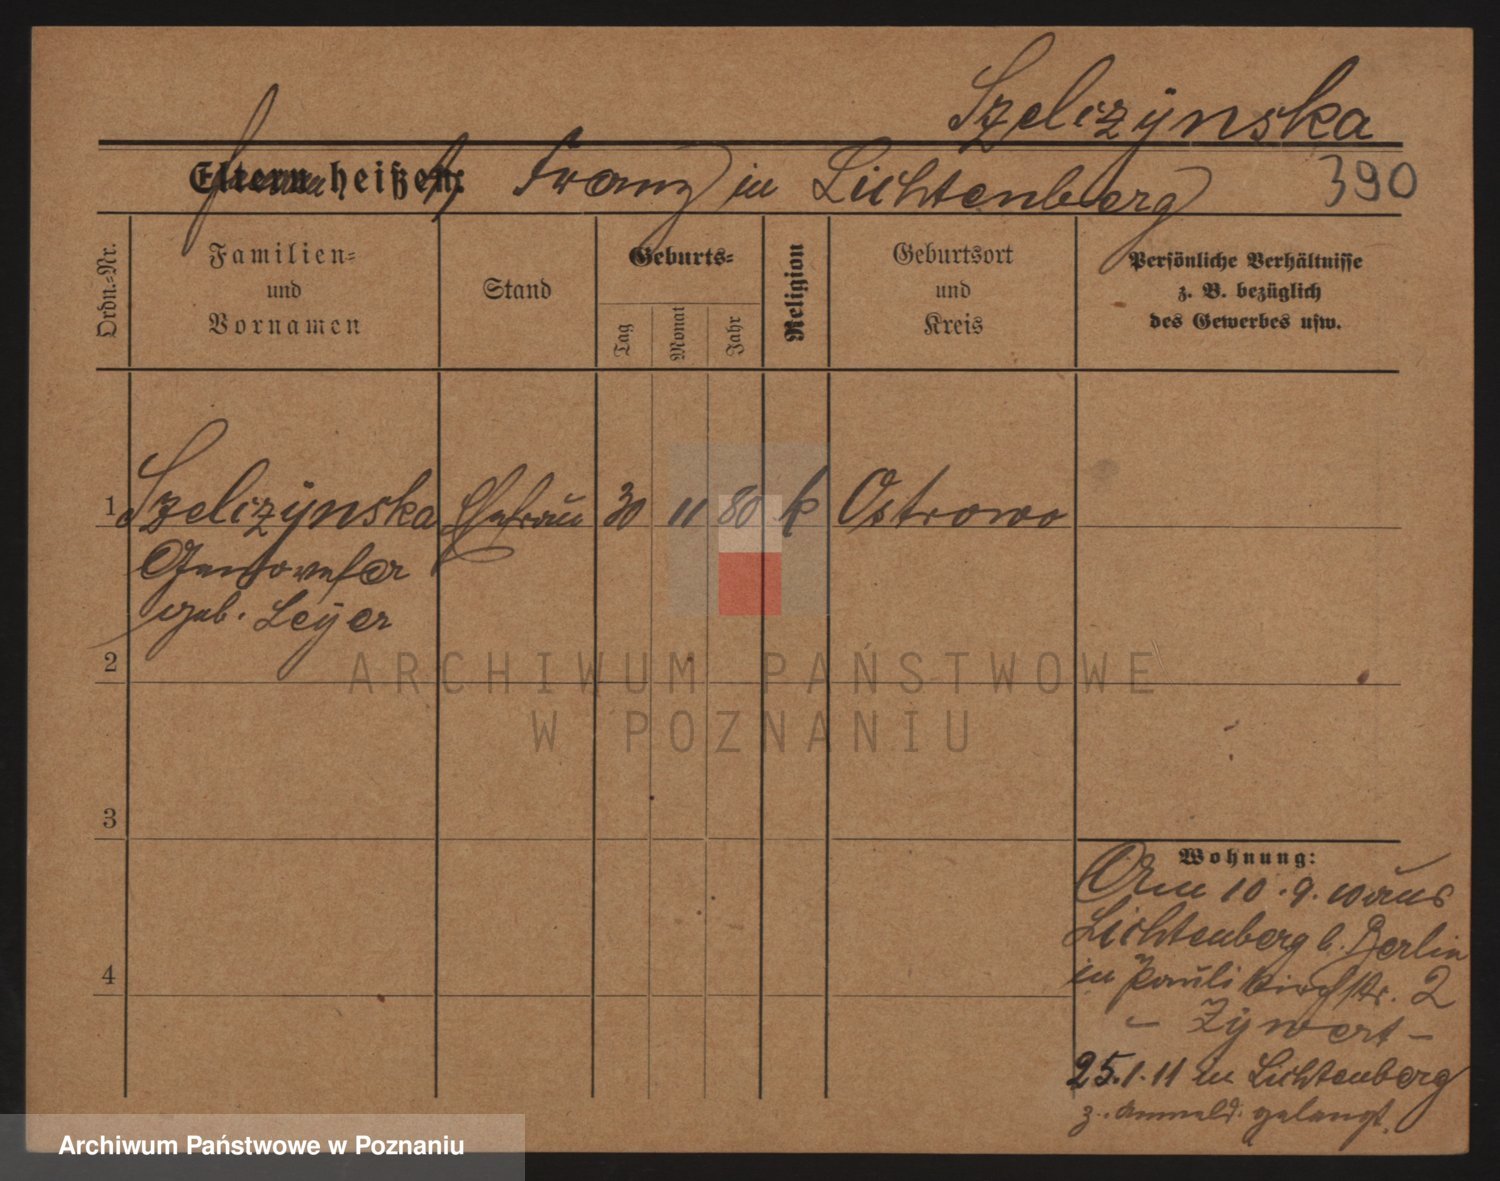 Szelczynska
Eltern heißen: Franz in Lichtenberg 390
Ordn.-Nr.
Familien-
und
Vornamen
Stand
Geburts-
Tag
Monat
Jahr
Religion
Geburtsort
und
Kreis
Persönliche Verhältnisse
z. B. bezüglich
des Gewerbes usw.
1 Szelczynska Ehefrau 30 11 80 k Ostrowo
Genovefa
geb. Leyer
2
3
4
Wohnung:
Am 10.9.10 aus
Lichtenberg b. Berlin
in Paulikirchstr. 2
- Zywert -
25.1.11 in Lichtenberg
z. Anmeld. gelangt.
ARCHIWUM PAŃSTWOWE
W POZNANIU
Archiwum Państwowe w Poznaniu